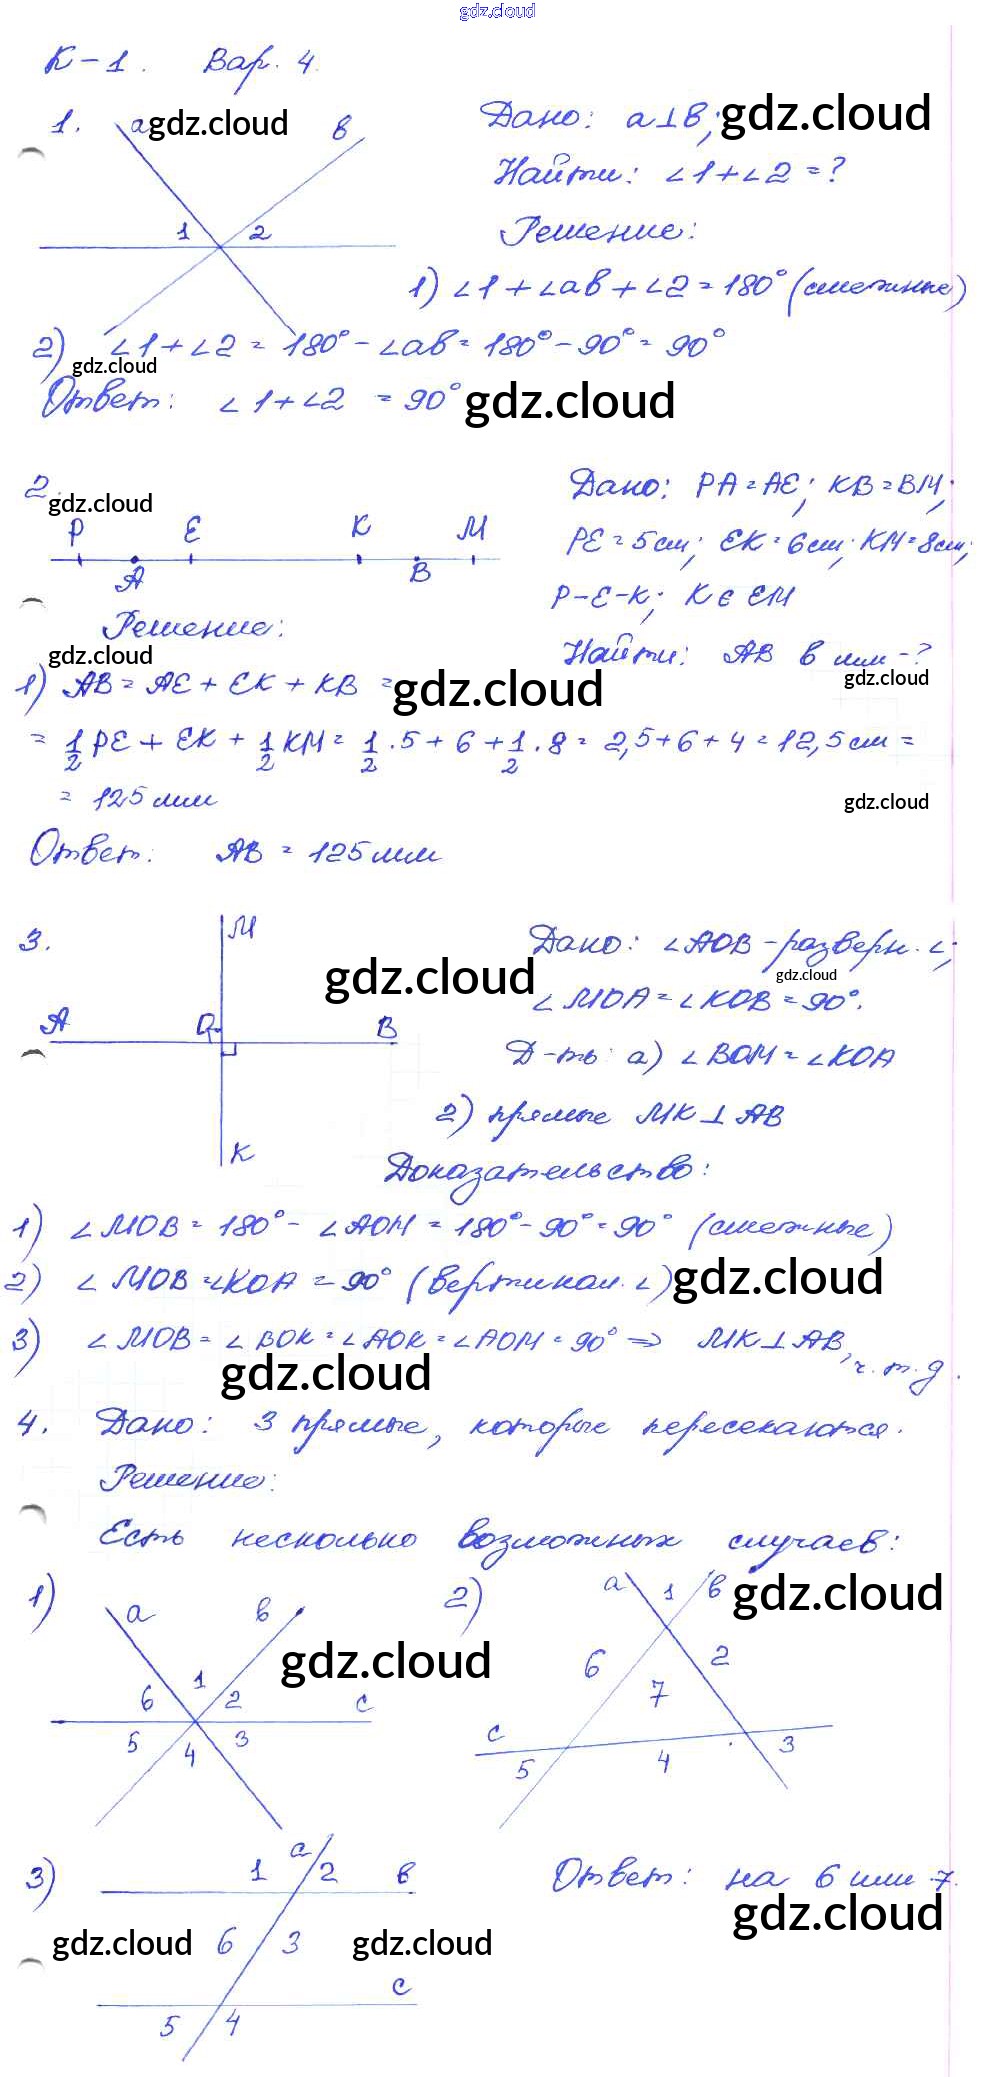 gdz.cloud
К-1. Вар. 4.
1. a gdz.cloud b Дано: a⊥b; gdz.cloud
Найти: ∠1+∠2=?
1 2 Решение:
1) ∠1+∠ab+∠2=180° (смежные)
2) ∠1+∠2=180°-∠ab=180°-90°=90°
gdz.cloud
Ответ: ∠1+∠2 = 90° gdz.cloud
2. gdz.cloud Дано: PA=AE; KB=BM;
P E K M
A B
PE=5см; EK=6см; KM=8см;
P-E-K; K∈EM
Решение:
Найти: AB в мм-?
gdz.cloud gdz.cloud
1) AB=AE+EK+KB = gdz.cloud
= 1/2 PE+EK+1/2 KM=1/2·5+6+1/2·8=2,5+6+4=12,5см=
= 125мм
gdz.cloud
Ответ: AB = 125мм
3. M Дано: ∠AOB-разверн. ∠;
gdz.cloud gdz.cloud
A O B
K
∠MOA=∠KOB=90°.
Д-ть: а) ∠BOM=∠KOA
2) прямые MK⊥AB
Доказательство:
1) ∠MOB=180°-∠AOM=180°-90°=90° (смежные)
2) ∠MOB=∠KOA=90° (вертикал. ∠) gdz.cloud
3) ∠MOB=∠BOK=∠AOK=∠AOM=90° ⇒ MK⊥AB, ч.т.д.
gdz.cloud
4. Дано: 3 прямые, которые пересекаются.
Решение:
Есть несколько возможных случаев:
1) a b gdz.cloud
1
6 2 c
5 4 3
2) a 1 b gdz.cloud
6 2
7
c 3
5 4
3) a
1 2 b
gdz.cloud 6 3 gdz.cloud
c
5 4
Ответ: на 6 или 7.
gdz.cloud